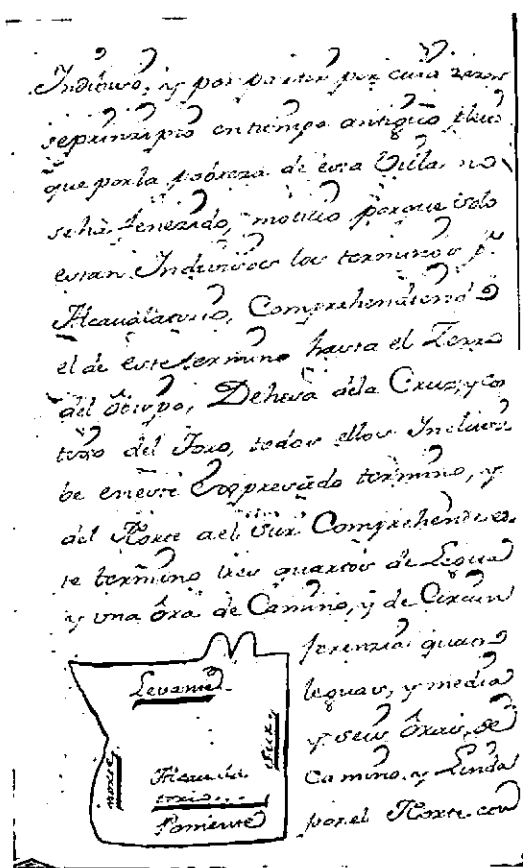 Indiviso, y por partir por cuia razon
se prinzipio en tiempo antiguo Pleito
que por la pobreza de esta Villa no
se há fenezido, motivo porque solo
estan Indivisos los terminos p.
Alcaudatorio, Comprehendiendo
el de este termino hasta el Zerro
del Obispo, Dehesa dela Cruz, y Co
del Toro, todos ellos Inclusi
be en este Expresado termino, y
del Norte ael Sur Comprehende es
te termino tres quartos de Legua
y una óra de Camino, y de Circun
ferenzia quatro
leguas, y media
y seis óras, de
Camino, y Linda
por el Norte con
Levante
Sur
Norte
Poniente